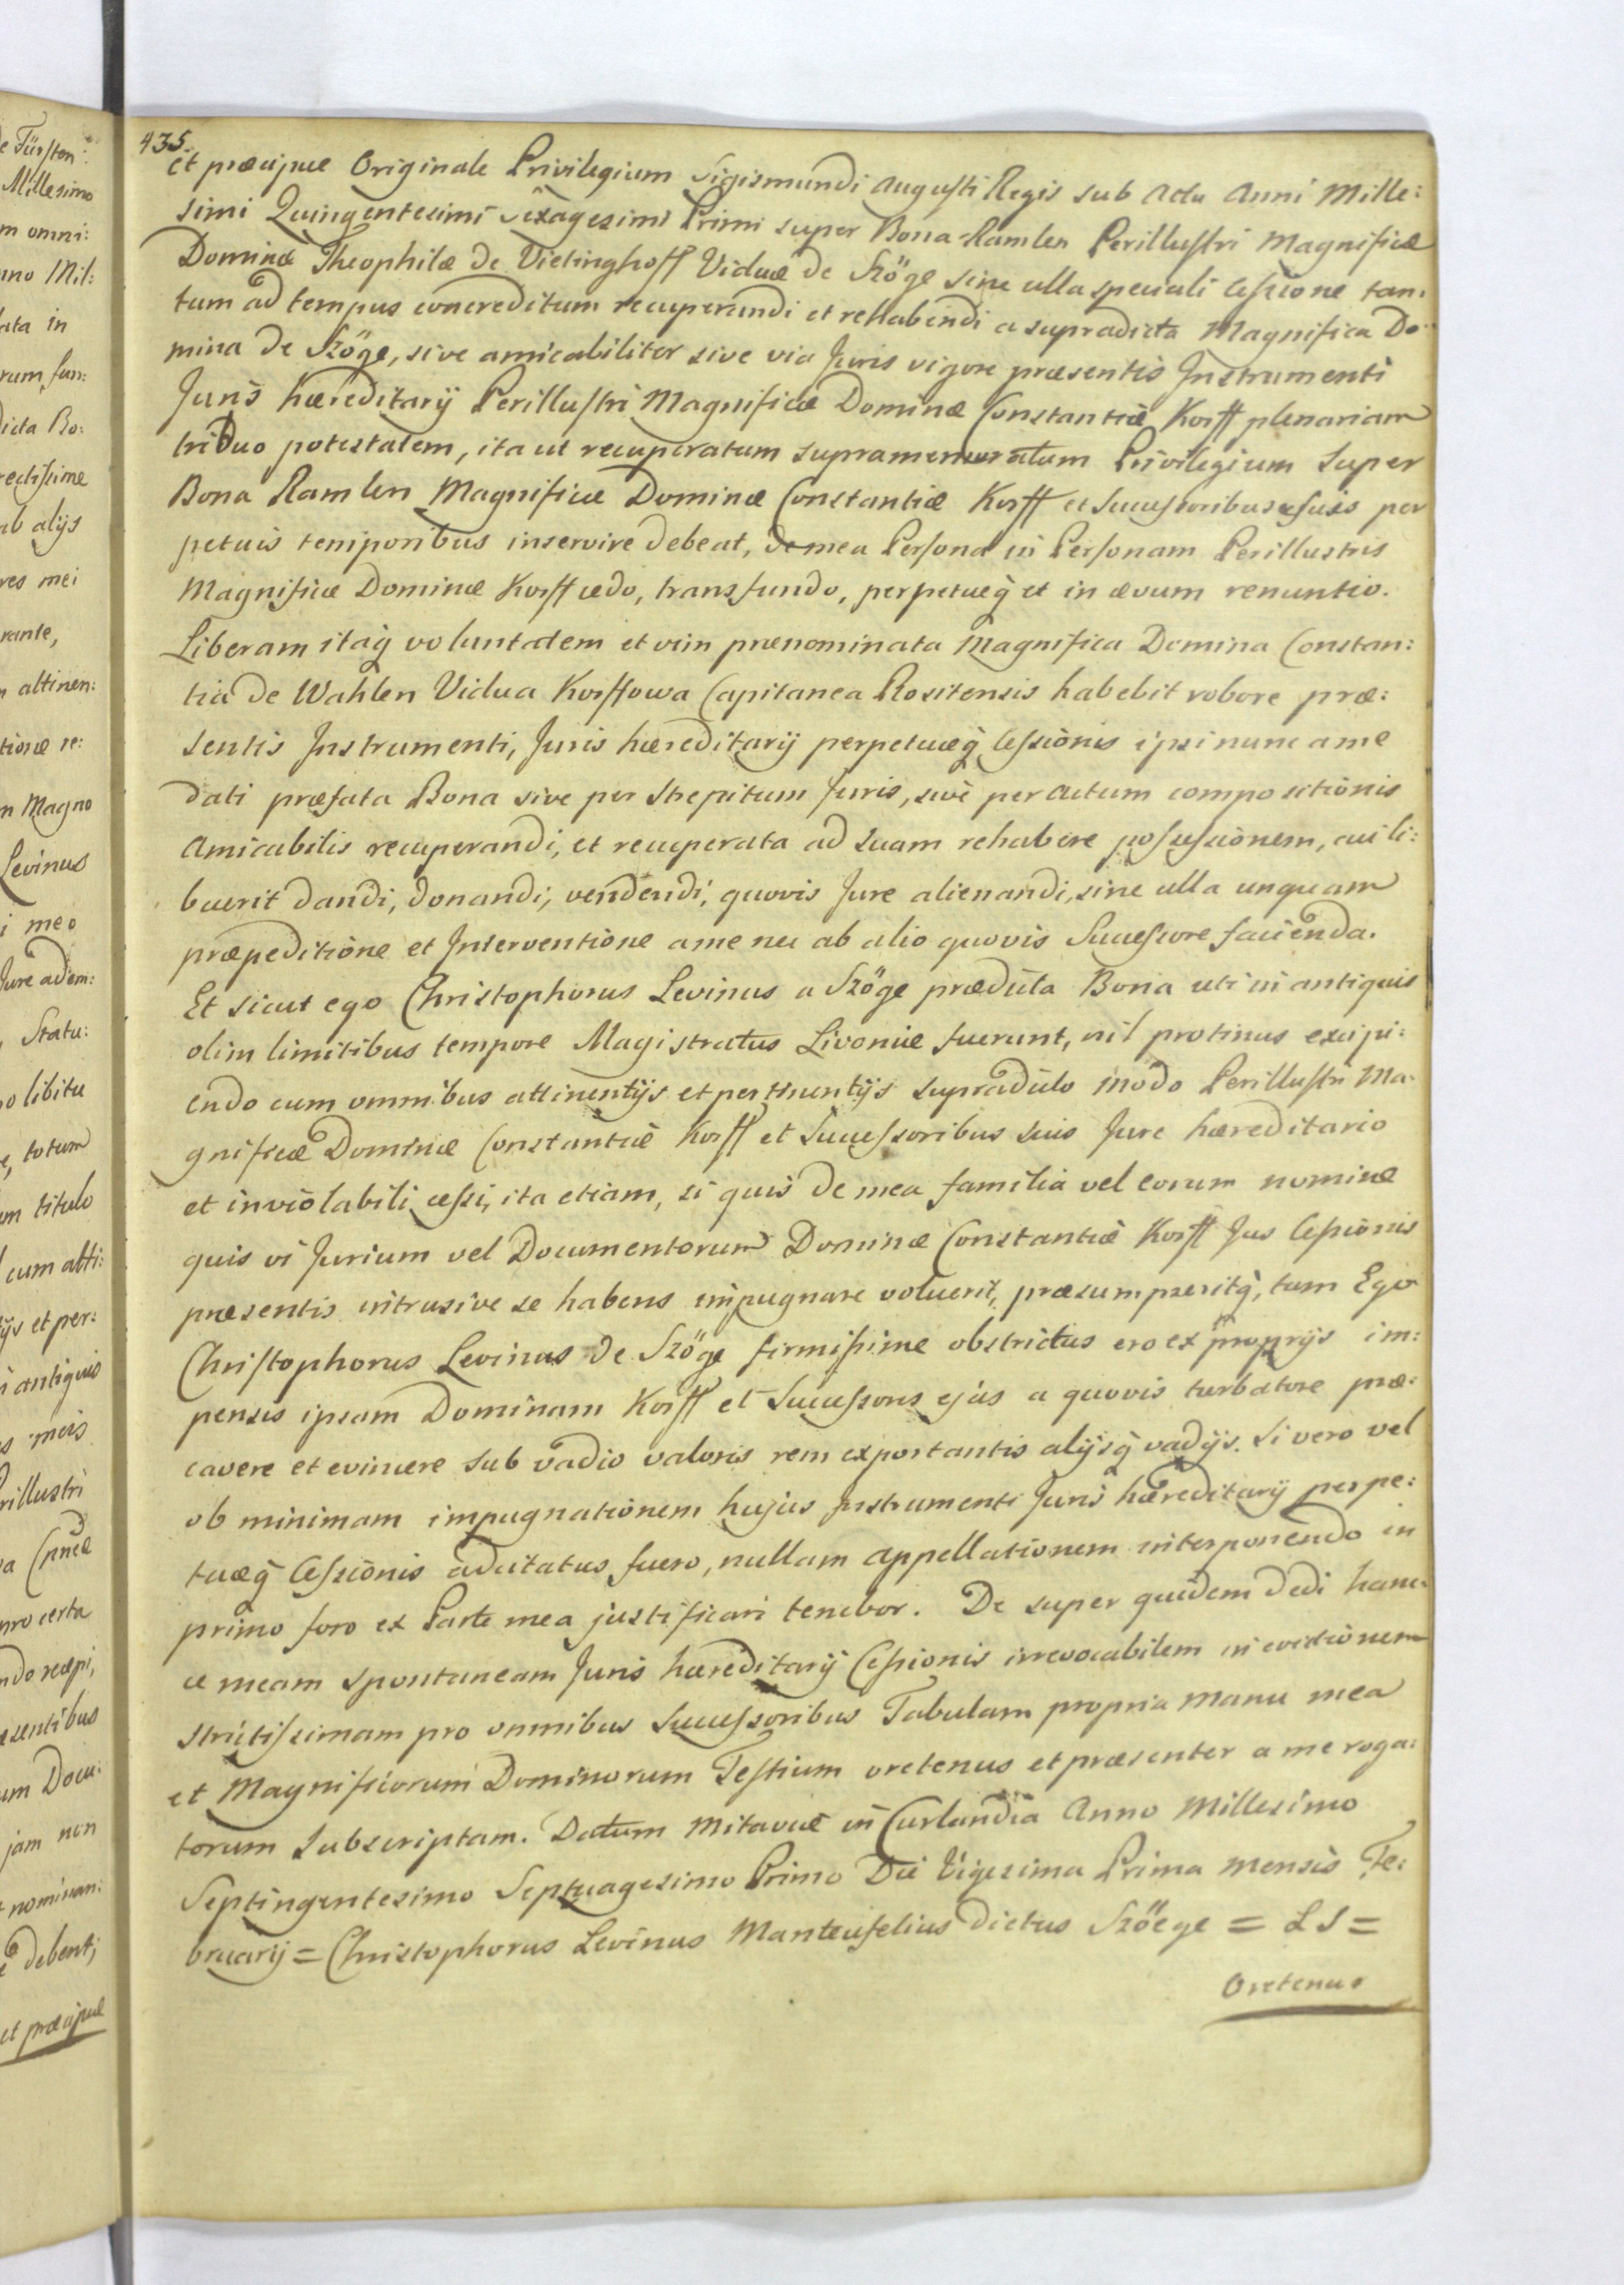 435.
et præcipue Originale Privilegium Sigismundi Augusti Regis sub Actu Anni Mille:
simi Quingentesimi Sexagesimi Primi super Bona Ramlen Perillustri Magnificæ
Dominæ Theophilæ de Vietinghoff Viduæ de Szöge sine ulla speciali Cessione tan:
tum ad tempus concreditum recuperandi et rehabendi a supradicta Magnifica Do:
mina de Szöge, sive amicabiliter sive via Juris vigore præsentis Instrumenti
Juris hæreditarij Perillustri Magnificæ Dominæ Constantiæ Korff plenariam
tribuo potestatem, ita ut recuperatum supramemoratum Privilegium super
Bona Ramlen Magnificæ Dominæ Constantiæ Korff et Successoribus suis per
petuis temporibus inservire debeat, de mea Persona in Personam Perillustris
Magnificæ Dominæ Korff cedo, transfundo, perpetueq̀ et in ævum renuntio.
Liberam itaq̀ voluntatem et vim prænominata Magnifica Domina Constan:
tia de Wahlen Vidua Korffowa Capitanea Rositensis habebit robore præ:
sentis Instrumenti, Juris hæreditarij perpetuæq̀ Cessionis ipsi nunc a me
dati præfata Bona sive per Strepitum Juris, sive per actum compositionis
amicabilis recuperandi, et recuperata ad suam rehabere possessionem, cui li:
buerit dandi, donandi, vendendi, quovis Jure alienandi, sine ulla unquam
præpeditione et Interventione a me nec ab alio quovis Successore facienda.
Et sicut ego Christophorus Levinus a Szöge prædicta Bona uti in antiquis
olim limitibus tempore Magistratus Livoniæ fuerunt, nil protinus excipi:
endo cum omnibus attinentijs et pertinentijs supradicto modo Perillustri Ma:
gnificæ Dominæ Constantiæ Korff et Successoribus suis Jure hæreditario
et inviolabili cessi, ita etiam, si quis de mea familia vel eorum nomine
quis vi Jurium vel Documentorum Dominæ Constantiæ Korff Jus Cessionis
præsentis intrusive se habens impugnare voluerit, præsumpseritq̀, tum Ego
Christophorus Levinus de Szöge firmissime obstrictus ero ex proprijs im:
pensis ipsam Dominam Korff et Successores ejus a quovis turbatore præ:
cavere et evincere sub vadio valoris rem exportantis alijsq̀ vadijs. Si vero vel
ob minimam impugnationem hujus Instrumenti Juris hæreditarij perpe:
tuæq̀ Cessionis adcitatus fuero, nullam appellationem interponendo in
primo foro ex Parte mea justificari tenebor. De super quidem dedi hanc:
ce meam spontaneam Juris hæreditarij Cessionis irrevocabilem in evictionem
strictissimam pro omnibus Successoribus Tabulam propria manu mea
et Magnificorum Dominorum Testium oretenus et præsenter a me roga:
torum subscriptam. Datum Mitaviæ in Curlandia Anno Millesimo
Septingentesimo Septuagesimo Primo Die Vigesima Prima mensis Fe:
bruarij = Christophorus Levinus Manteufelius dictus Szöege = LS =
Oretenus